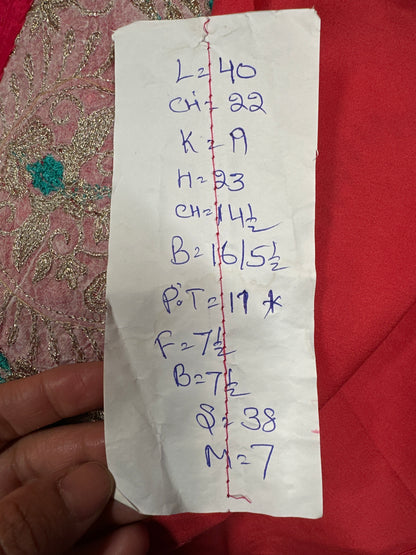 L = 40
CH = 22
K = 19
H = 23
CH = 14½
B = 16/5½
P.T = 17 *
F = 7½
B = 7½
S = 38
M = 7